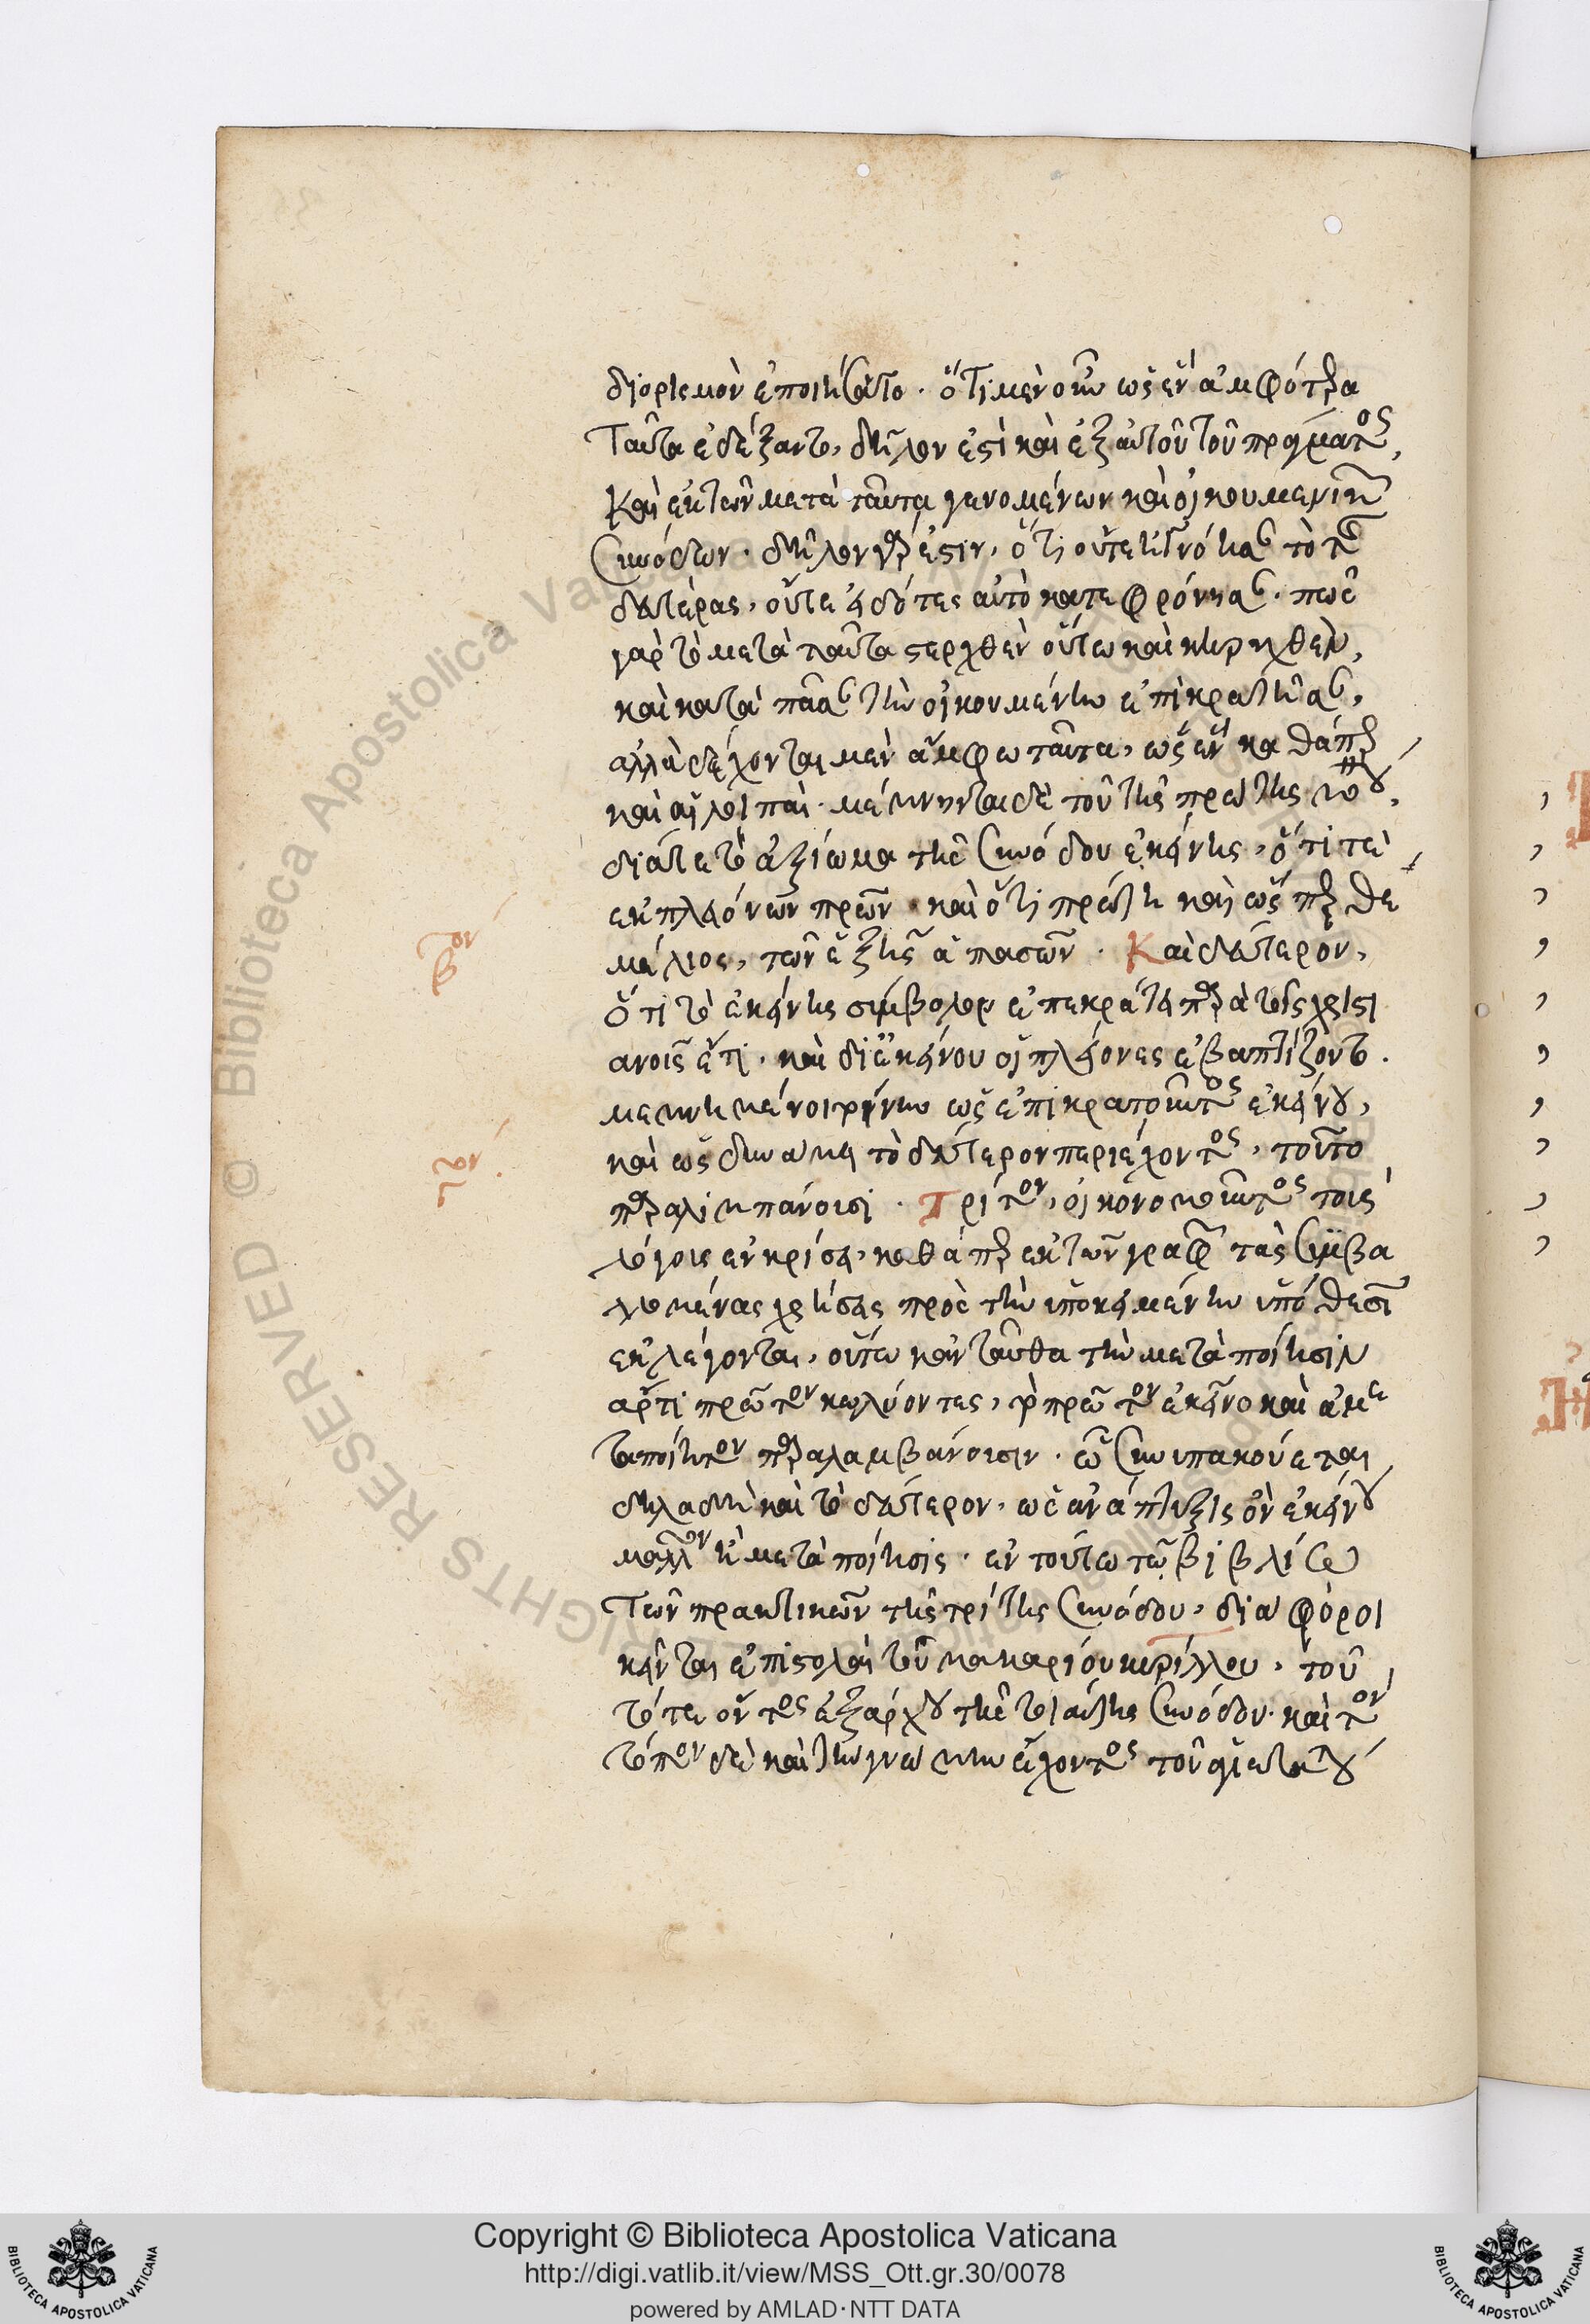 διορισμὸν ἐποιήσατο. ὅτι μὲν οὖν ὡς ἓν ἀμφότερα
ταῦτα ἐδέξαντο, δῆλόν ἐστι καὶ ἐξ αὐτοῦ τοῦ πράγματος,
καὶ ἐκ τῶν μετὰ ταῦτα γενομένων καὶ οἰκουμενικῶν
συνόδων. δῆλον γάρ ἐστιν, ὅτι οὔτε ἠγνόησαν τὸ τῆς
δευτέρας, οὔτε εἰδότες αὐτὸ κατεφρόνησαν. πῶς
γὰρ τὸ μετὰ ταῦτα στερχθὲν οὕτω καὶ κηρυχθὲν,
καὶ κατὰ πᾶσαν τὴν οἰκουμένην ἐπικρατῆσαν,
ἀλλὰ δέχονται μὲν ἄμφω ταῦτα, ὡς ἓν καθάπερ
καὶ αἱ λοιπαί. μέμνηνται δὲ τοῦ τῆς πρώτης μόνου,
διά τε τὸ ἀξίωμα τῆς συνόδου ἐκείνης, ὅτι τε
ἐκ πλειόνων πρῶν καὶ ὅτι πρώτη καὶ ὥσπερ θε
μέλιος, τῶν ἑξῆς ἁπασῶν. Καὶ δεύτερον,
ὅτι τὸ ἐκείνης σύμβολον ἐπεκράτει παρὰ τοῖς χριστι
ανοῖς ἔτι. καὶ δι' ἐκείνου οἱ πλείονες ἐβαπτίζοντο.
μεμνημένοι τοίνυν ὡς ἐπικρατοῦντος ἐκείνου,
καὶ ὡς δυνάμει τὸ δεύτερον περιέχοντος, τοῦτο
παραλιμπάνουσι. Τρίτον, οἰκονομοῦντος τοῖς
λόγοις ἐν κρίσει, καθάπερ ἐκ τῶν γραφῶν τὰς συμβα
λομένας χρήσεις πρὸς τὴν ὑποκειμένην ὑπόθεσιν
ἐκλέγονται, οὕτω κἀνταῦθα τὴν μεταποίησιν
ἄρτι πρῶτον κωλύοντες, τὸ πρῶτον ἐκεῖνο καὶ ἀμε
ταποίητον παραλαμβάνουσιν. ᾧ συνυπακούεται
δηλαδὴ καὶ τὸ δεύτερον, ὡς ἀνάπτυξις ὂν ἐκείνου
μᾶλλον ἢ μεταποίησις. ἐν τούτω τῶ βιβλίω
τῶν πρακτικῶν τῆς τρίτης συνόδου, διάφοροι
κεῖνται ἐπιστολαὶ τοῦ μακαρίου κυρίλλου, τοῦ
τότε ὄντος ἐξάρχου τῆς τοιαύτης συνόδου. καὶ τὸν
τόπον δὲ καὶ τὴν γνώμην ἔχοντος τοῦ ἁγιωτάτου
βον
γον
Copyright © Biblioteca Apostolica Vaticana
http://digi.vatlib.it/view/MSS_Ott.gr.30/0078
powered by AMLAD·NTT DATA